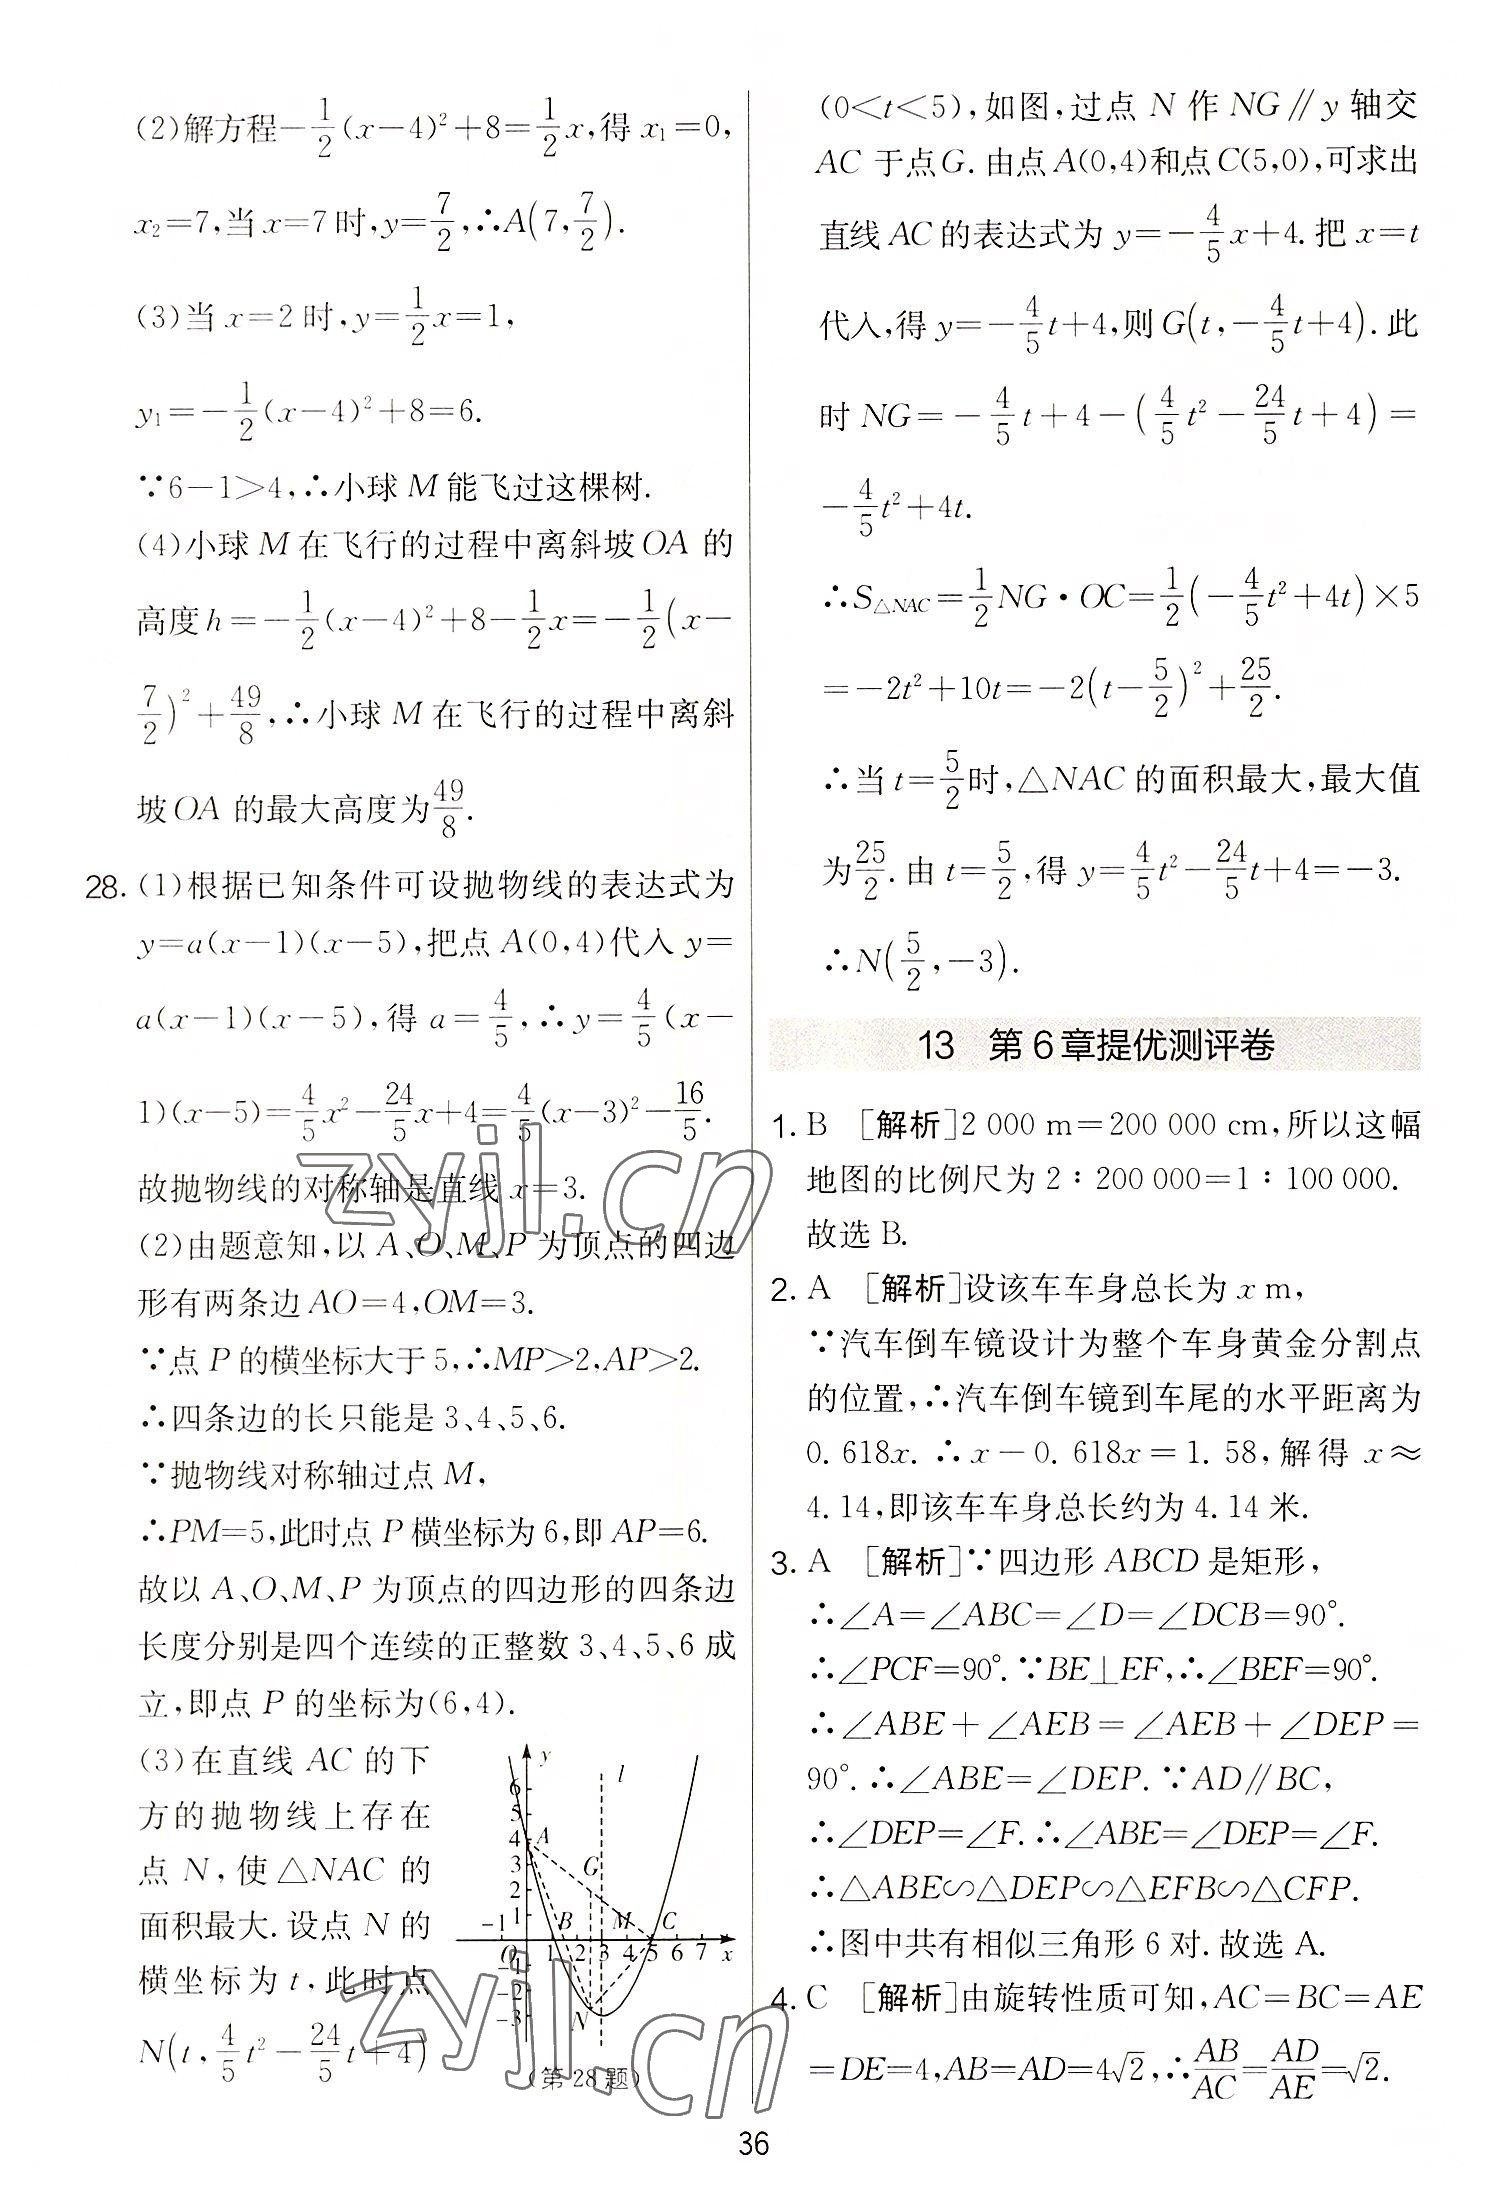 (2)解方程-\frac{1}{2}(x-4)²+8=\frac{1}{2}x,得 x₁=0,
x₂=7,当 x=7 时,y=\frac{7}{2},∴A(7,\frac{7}{2}).
(3)当 x=2 时,y=\frac{1}{2}x=1,
y₁=-\frac{1}{2}(x-4)²+8=6.
∵6-1>4,∴小球 M 能飞过这棵树.
(4)小球 M 在飞行的过程中离斜坡 OA 的
高度 h=-\frac{1}{2}(x-4)²+8-\frac{1}{2}x=-\frac{1}{2}(x-
\frac{7}{2})²+\frac{49}{8},∴小球 M 在飞行的过程中离斜
坡 OA 的最大高度为\frac{49}{8}.
28. (1)根据已知条件可设抛物线的表达式为
y=a(x-1)(x-5),把点 A(0,4)代入 y=
a(x-1)(x-5),得 a=\frac{4}{5},∴y=\frac{4}{5}(x-
1)(x-5)=\frac{4}{5}x²-\frac{24}{5}x+4=\frac{4}{5}(x-3)²-\frac{16}{5}.
故抛物线的对称轴是直线 x=3.
(2)由题意知,以 A、O、M、P 为顶点的四边
形有两条边 AO=4,OM=3.
∵点 P 的横坐标大于 5,∴MP>2,AP>2.
∴四条边的长只能是 3、4、5、6.
∵抛物线对称轴过点 M,
∴PM=5,此时点 P 横坐标为 6,即 AP=6.
故以 A、O、M、P 为顶点的四边形的四条边
长度分别是四个连续的正整数 3、4、5、6 成
立,即点 P 的坐标为(6,4).
(3)在直线 AC 的下
方的抛物线上存在
点 N,使△NAC 的
面积最大.设点 N 的
横坐标为 t,此时点
N(t,\frac{4}{5}t²-\frac{24}{5}t+4)
y
l
6
5
4 A
3 G
2
1 B M C
-1 O 1 2 3 4 5 6 7 x
-1
-2
-3 N
(第 28 题)
(0<t<5),如图,过点 N 作 NG∥y 轴交
AC 于点 G.由点 A(0,4)和点 C(5,0),可求出
直线 AC 的表达式为 y=-\frac{4}{5}x+4.把 x=t
代入,得 y=-\frac{4}{5}t+4,则 G(t,-\frac{4}{5}t+4).此
时 NG=-\frac{4}{5}t+4-(\frac{4}{5}t²-\frac{24}{5}t+4)=
-\frac{4}{5}t²+4t.
∴S△NAC=\frac{1}{2}NG·OC=\frac{1}{2}(-\frac{4}{5}t²+4t)×5
=-2t²+10t=-2(t-\frac{5}{2})²+\frac{25}{2}.
∴当 t=\frac{5}{2}时,△NAC 的面积最大,最大值
为\frac{25}{2}.由 t=\frac{5}{2},得 y=\frac{4}{5}t²-\frac{24}{5}t+4=-3.
∴N(\frac{5}{2},-3).
13 第 6 章提优测评卷
1. B [解析]2 000 m=200 000 cm,所以这幅
地图的比例尺为 2∶200 000=1∶100 000.
故选 B.
2. A [解析]设该车车身总长为 x m,
∵汽车倒车镜设计为整个车身黄金分割点
的位置,∴汽车倒车镜到车尾的水平距离为
0.618x.∴x-0.618x=1.58,解得 x≈
4.14,即该车车身总长约为 4.14 米.
3. A [解析]∵四边形 ABCD 是矩形,
∴∠A=∠ABC=∠D=∠DCB=90°.
∴∠PCF=90°.∵BE⊥EF,∴∠BEF=90°.
∴∠ABE+∠AEB=∠AEB+∠DEP=
90°.∴∠ABE=∠DEP.∵AD∥BC,
∴∠DEP=∠F.∴∠ABE=∠DEP=∠F.
∴△ABE∽△DEP∽△EFB∽△CFP.
∴图中共有相似三角形 6 对.故选 A.
4. C [解析]由旋转性质可知,AC=BC=AE
=DE=4,AB=AD=4√2,∴\frac{AB}{AC}=\frac{AD}{AE}=√2.
36
zyjl.cn
zyjl.cn